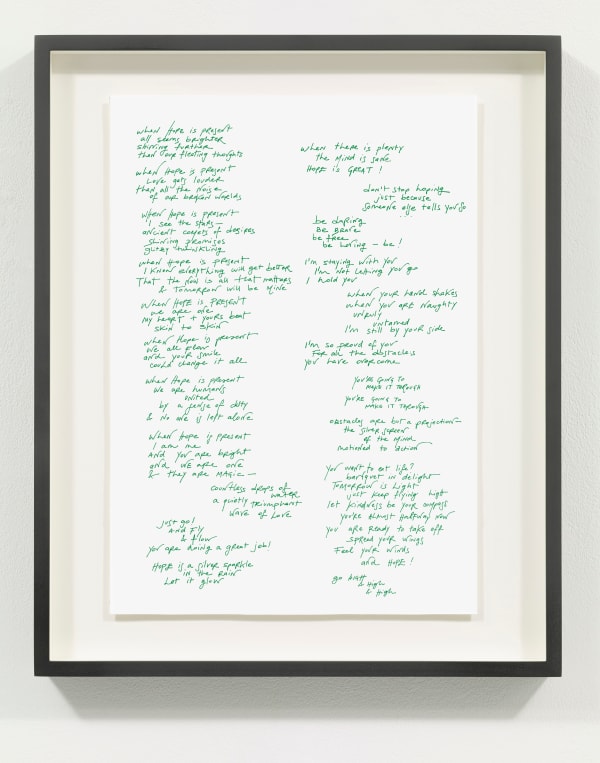 when Hope is present
all seems brighter
shining further
than our fleeting thoughts
when Hope is present
Love gets louder
than all the Noise
of our broken worlds
when Hope is present
I see the stars —
ancient carpets of desires
shining promises
glitter twinkling
when Hope is present
I know everything will get better
That the Now is all that matters
& Tomorrow will be Mine
when Hope is present
we are one
my heart + yours beat
skin to skin
when Hope is present
We all plow
and your smile
could change it all
when Hope is present
We are humans
united
by a sense of duty
& No one is left alone
when Hope is present
I am me
And you are bright
and we are one
& they are magic —
countless drops of
water
a quietly triumphant
wave of Love
just go!
And Fly
& flow
you are doing a great job!
Hope is a silver sparkle
in the rain
Let it glow
when there is plenty
the Mind is sane
Hope is GREAT !
don't stop hoping
just because
someone else tells you so
be daring
Be Brave
be free
be loving — be !
I'm staying with you
I'm Not Letting you go
I hold you
when your hand shakes
when you are Naughty
unruly
untamed
I'm still by your side
I'm so proud of you
For all the obstacles
you have overcome
you're going to
make it through
you're going to
make it through
obstacles are but a projection —
the silver screen
of the Mind
motioned to action
you want to eat life?
banquet in delight
Tomorrow is Light
just keep flying high
let kindness be your compass
you're Almost Halfway Now
you are ready to take off
spread your wings
Feel your winds
and Hope !
go high
& High
& High